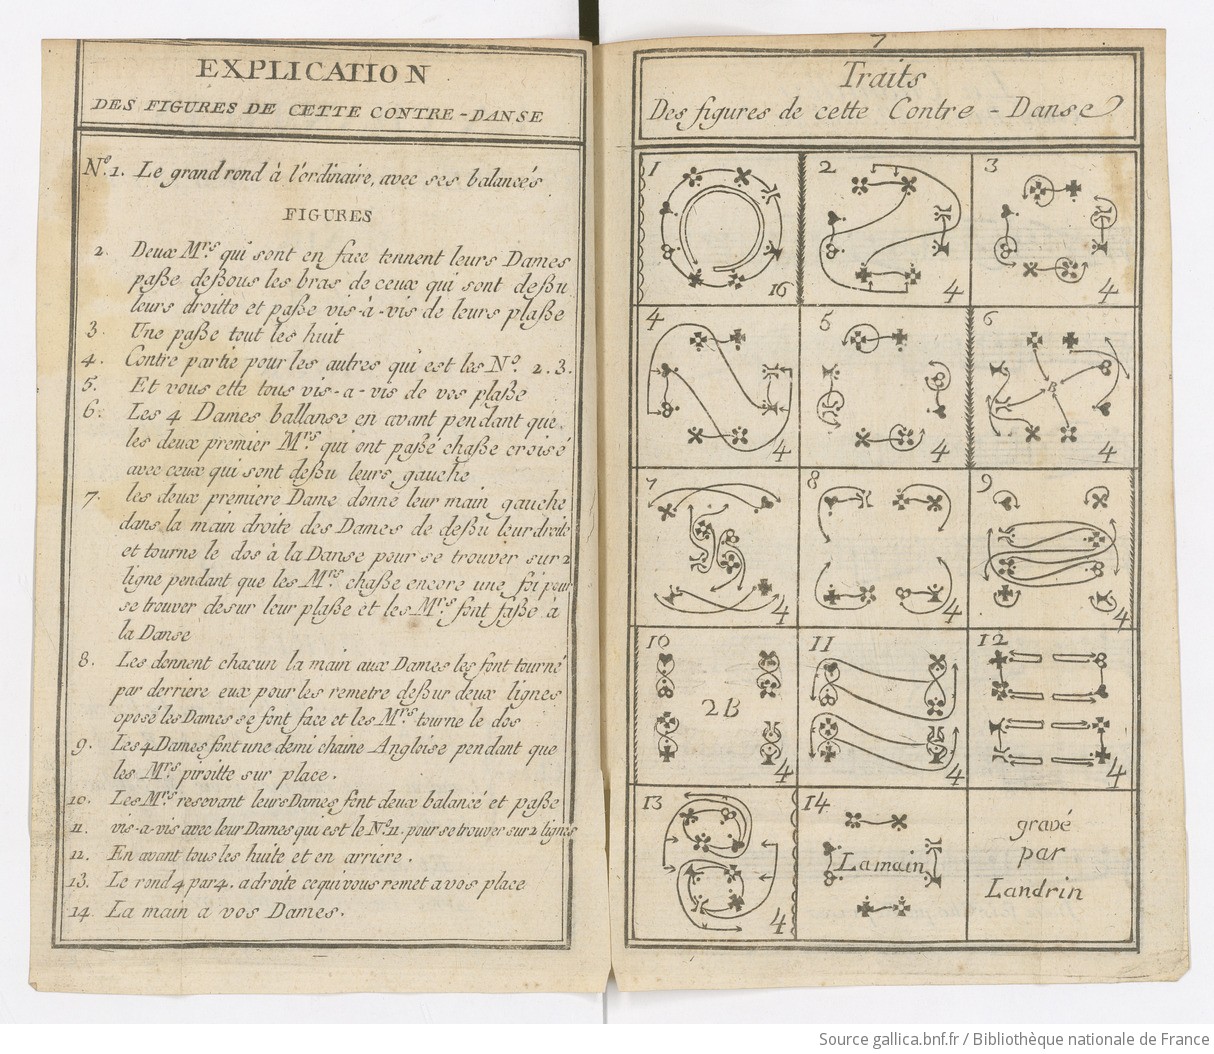 EXPLICATION
DES FIGURES DE CETTE CONTRE-DANSE
Nº. 1. Le grand rond à l'ordinaire, avec ses balancés
FIGURES
2. Deux Mrs qui sont en face tennent leurs Dames
paße deßous les bras de ceux qui sont deßu
leurs droitte et paße vis-à-vis de leurs plaße
3. Une paße tout les huit
4. Contre partie pour les autres qui est les Nº. 2.3.
5. Et vous ette tous vis-a-vis de vos plaße
6. Les 4 Dames ballanse en avant pendant que
les deux premier Mrs qui ont paßé chaße croisé
avec ceux qui sont deßu leurs gauche
7. les deux premiere Dame donne leur main gauche
dans la main droite des Dames de deßu leur droite
et tourne le dos à la Danse pour se trouver sur 2
ligne pendant que les Mrs chaße encore une foi pour
se trouver desur leur plaße et les Mrs font faße a
la Danse
8. Les donnent chacun la main aux Dames les font tourné
par derriere eux pour les remetre deßur deux lignes
oposé les Dames se font face et les Mrs tourne le dos
9. Les 4 Dames font une demi chaine Angloise pendant que
les Mrs piroitte sur place.
10. Les Mrs resevant leurs Dames font deux balancé et paße
11. vis-a-vis avec leur Dames qui est le Nº 11. pour se trouver sur 2 lignes
12. En avant tous les huite et en arriere.
13. Le rond 4 par 4. a droite ce qui vous remet a vos place
14. La main a vos Dames.
7
Traits
Des figures de cette Contre-Danse
1 16
2 4
3 4
4 4
5 4
6 4
7 4
8 4
9 4
10 2B 4
11 4
12 4
13 4
14 La main
gravé
par
Landrin
Source gallica.bnf.fr / Bibliothèque nationale de France